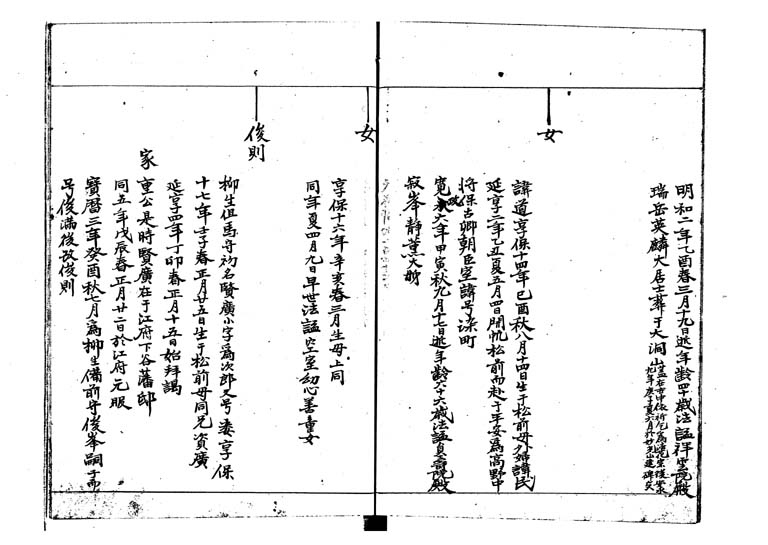 明和二年乙酉春三月十九日逝年齢四十歳法諡祥雲院殿
瑞岳英麟大居士葬于大洞山
女
諱道享保十四年己酉秋八月十四日生于松前母八婦諱民
延享二年乙丑夏五月四日開帆松前而赴于平安為高野中
将保古卿朝臣室諱号染町
寛政六年甲寅秋九月十七日逝年齢六十六歳法諡貞壽院殿
寂峯静薫大姉
女
享保十六年辛亥春三月生母上同
同年夏四月九日早世法諡空室幻心善童女
俊則
柳生但馬守初名賢廣小字為次郎又号 享保
十七年壬子春正月廿五日生于松前母同兄資廣
延享四年丁卯春正月十五日始拜謁
家
重公是時賢廣在于江府下谷藩邸
同五年戊辰春正月廿二日於江府元服
寳暦三年癸酉秋七月為柳生備前守俊峯嗣子而
号俊満後改俊則